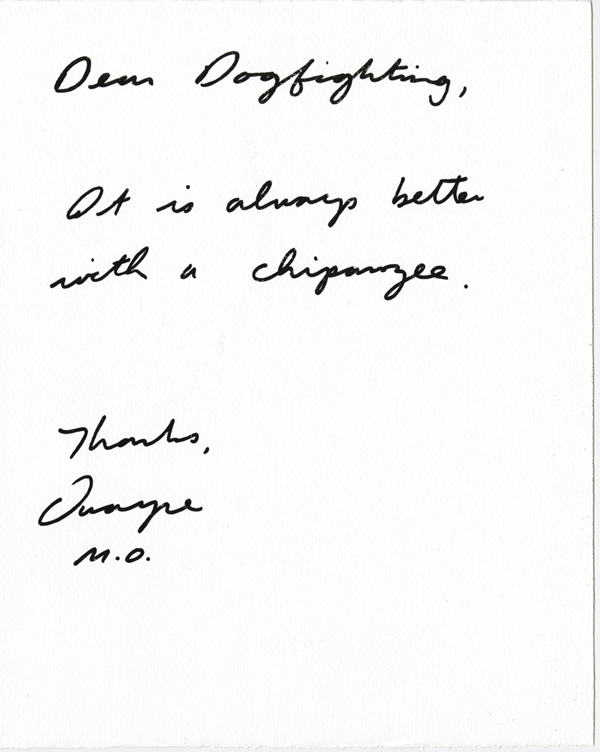 Dear Dogfighting,
It is always better
with a chipanzee.
Thanks,
M.O.